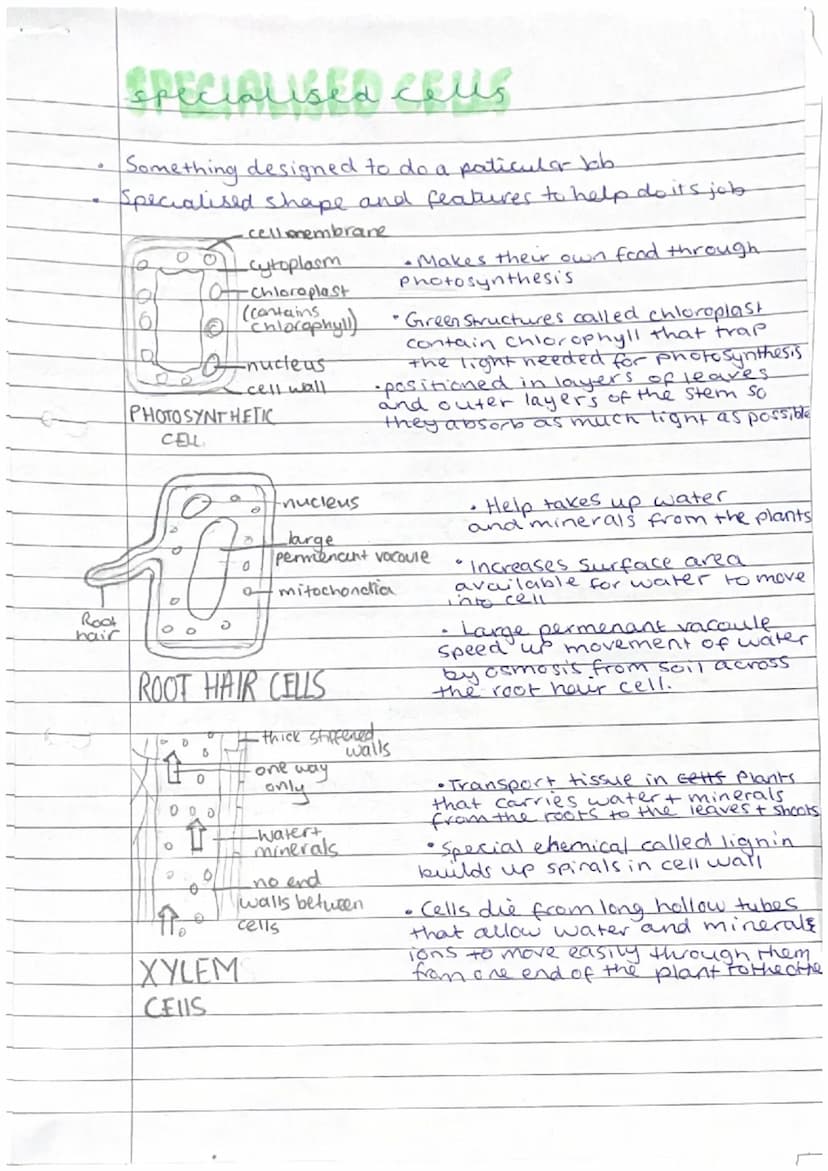 specialised cells
• Something designed to do a paticular job
• Specialised shape and features to help do its job
cell membrane
cytoplasm
chloroplast
(contains
chlorophyll)
nucleus
cell wall
PHOTOSYNTHETIC
CELL
• Makes their own food through
photosynthesis
• Green structures called chloroplast
contain chlorophyll that trap
the light needed for photosynthesis
• positioned in layers of leaves
and outer layers of the stem so
they absorb as much light as possible
nucleus
large
permenant vacoule
mitochondia
Root
hair
ROOT HAIR CELLS
• Help takes up water
and minerals from the plants
• Increases surface area
available for water to move
into cell
• Large permenant vacoule
speed up movement of water
by osmosis from soil across
the root hair cell.
thick stiffened
walls
one way
only
water +
minerals
no end
walls between
cells
XYLEM
CEllS
• Transport tissue in cells plants
that carries water + minerals
from the roots to the leaves + shoots
• Special chemical called lignin
builds up spirals in cell wall
• Cells die from long hollow tubes
that allow water and minerals
ions to move easily through them
from one end of the plant to the othe